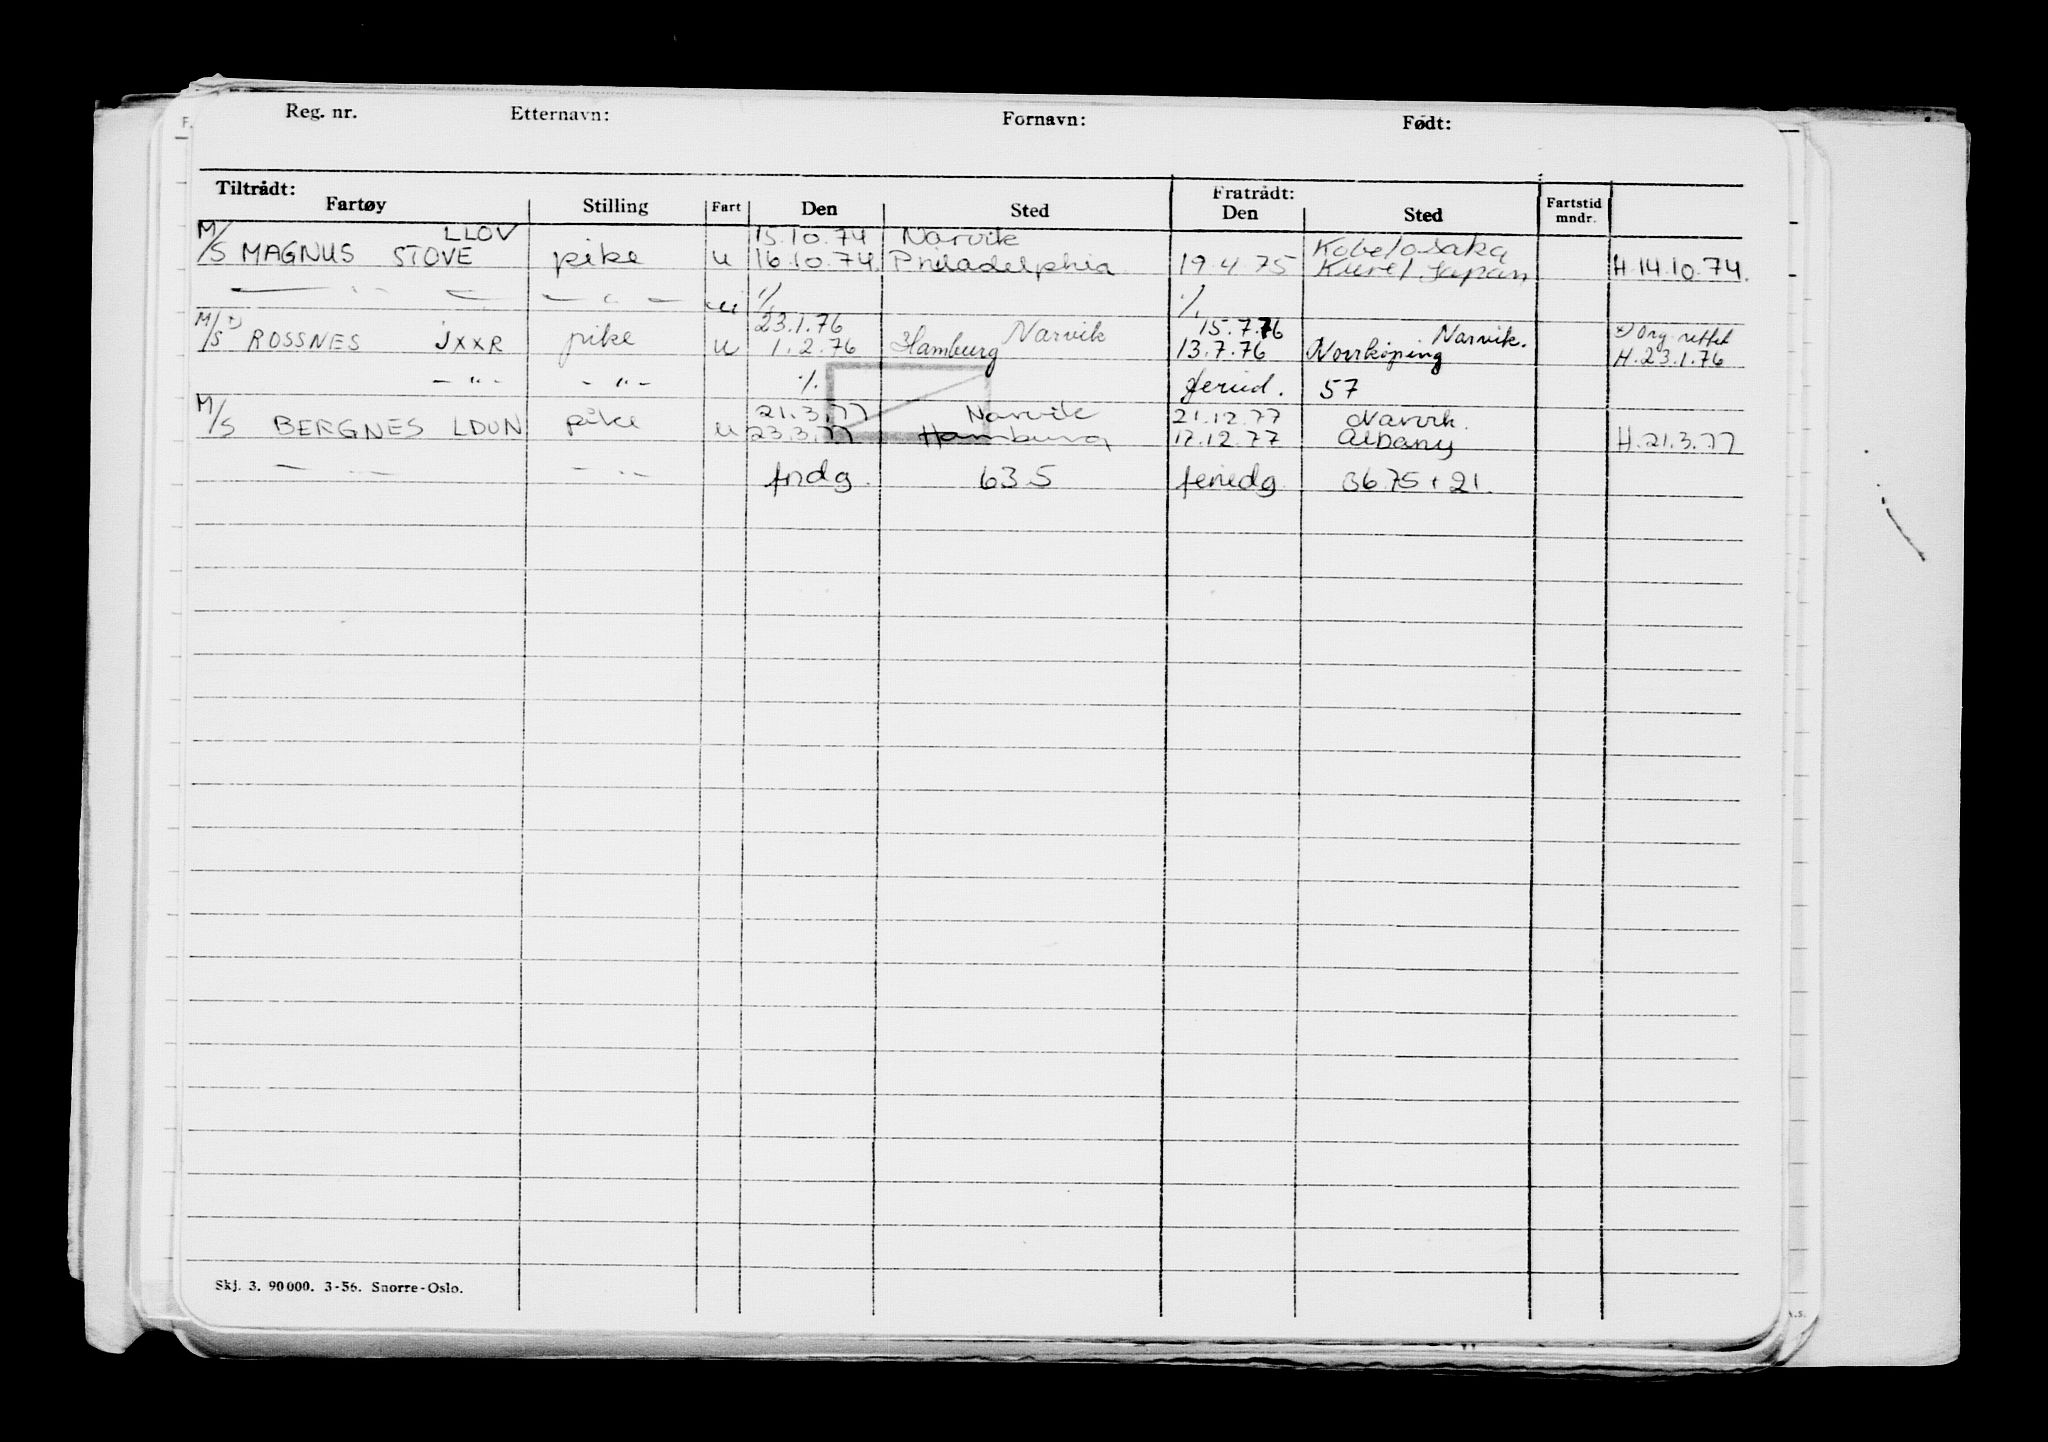 Reg. nr. Etternavn: Fornavn: Født:
Tiltrådt: Fratrådt:
Fartøy Stilling Fart Den Sted Den Sted Fartstid mndr.
LLOV 15.10.74 Narvik Kobe/Osaka
M/S MAGNUS STOVE pike u 16.10.74 Philadelphia 19.4.75 Japan H.14.10.74.
— " — — " — ./. ./.
23.1.76 Narvik 15.7.76 Narvik. x) Org. rettet
M/S x) ROSSNES JXXR pike u 1.2.76 Hamburg 13.7.76 Norrköping H.23.1.76
- " - - " - ./. feried. 57
21.3.77 Narvik 21.12.77 Narvik.
M/S BERGNES LDUN pike u 23.3.77 Hamburg 17.12.77 Albany H.21.3.77
— " — — " — fridg. 63.5 feriedg. 36.75 + 21.
Skj. 3. 90000. 3-56. Snorre-Oslo.